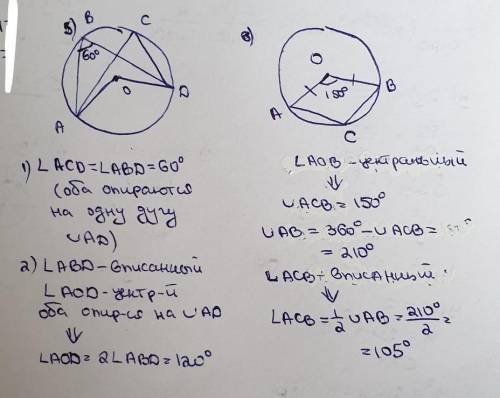 5)
B
C
60°
O
D
A
1) ∠ACD=∠ABD=60°
(оба опираются
на одну дугу
∪AD)
2) ∠ABD-вписанный
∠AOD-центр-й
оба опир-ся на ∪AD
⇓
∠AOD=2∠ABD=120°
6)
O
150°
A
B
C
∠AOB-центральный
⇓
∪ACB=150°
∪AB=360°-∪ACB=
=210°
∠ACB-вписанный
⇓
∠ACB=1/2∪AB=210°/2=
=105°